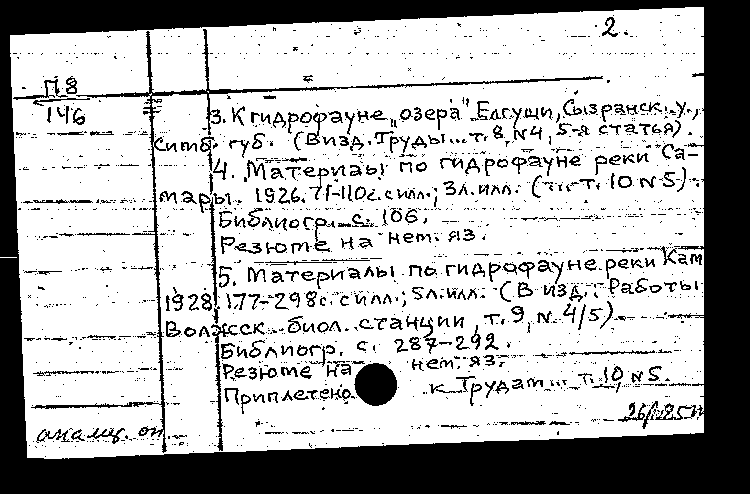 2.
П8
146
3. К гидрофауне „озера" Елгуши, Сызранск. у.,
симб. губ. (В изд. Труды... т. 8, N4, 5-я статья).
4. Материалы по гидрофауне реки Са-
мары. 1926. 71-110 с. с илл.; 3 л. илл. (... т. 10 N5).
Библиогр. с. 106.
Резюме на нем. яз.
5. Материалы по гидрофауне реки Кам
1928. 177-298 с. с илл.; 5 л. илл. (В изд.: Работы
Волжск. биол. станции, т. 9, N. 4/5).
Библиогр. с. 287-292.
Резюме на нем. яз.
Приплетено к Трудам... т. 10, N5.
оп